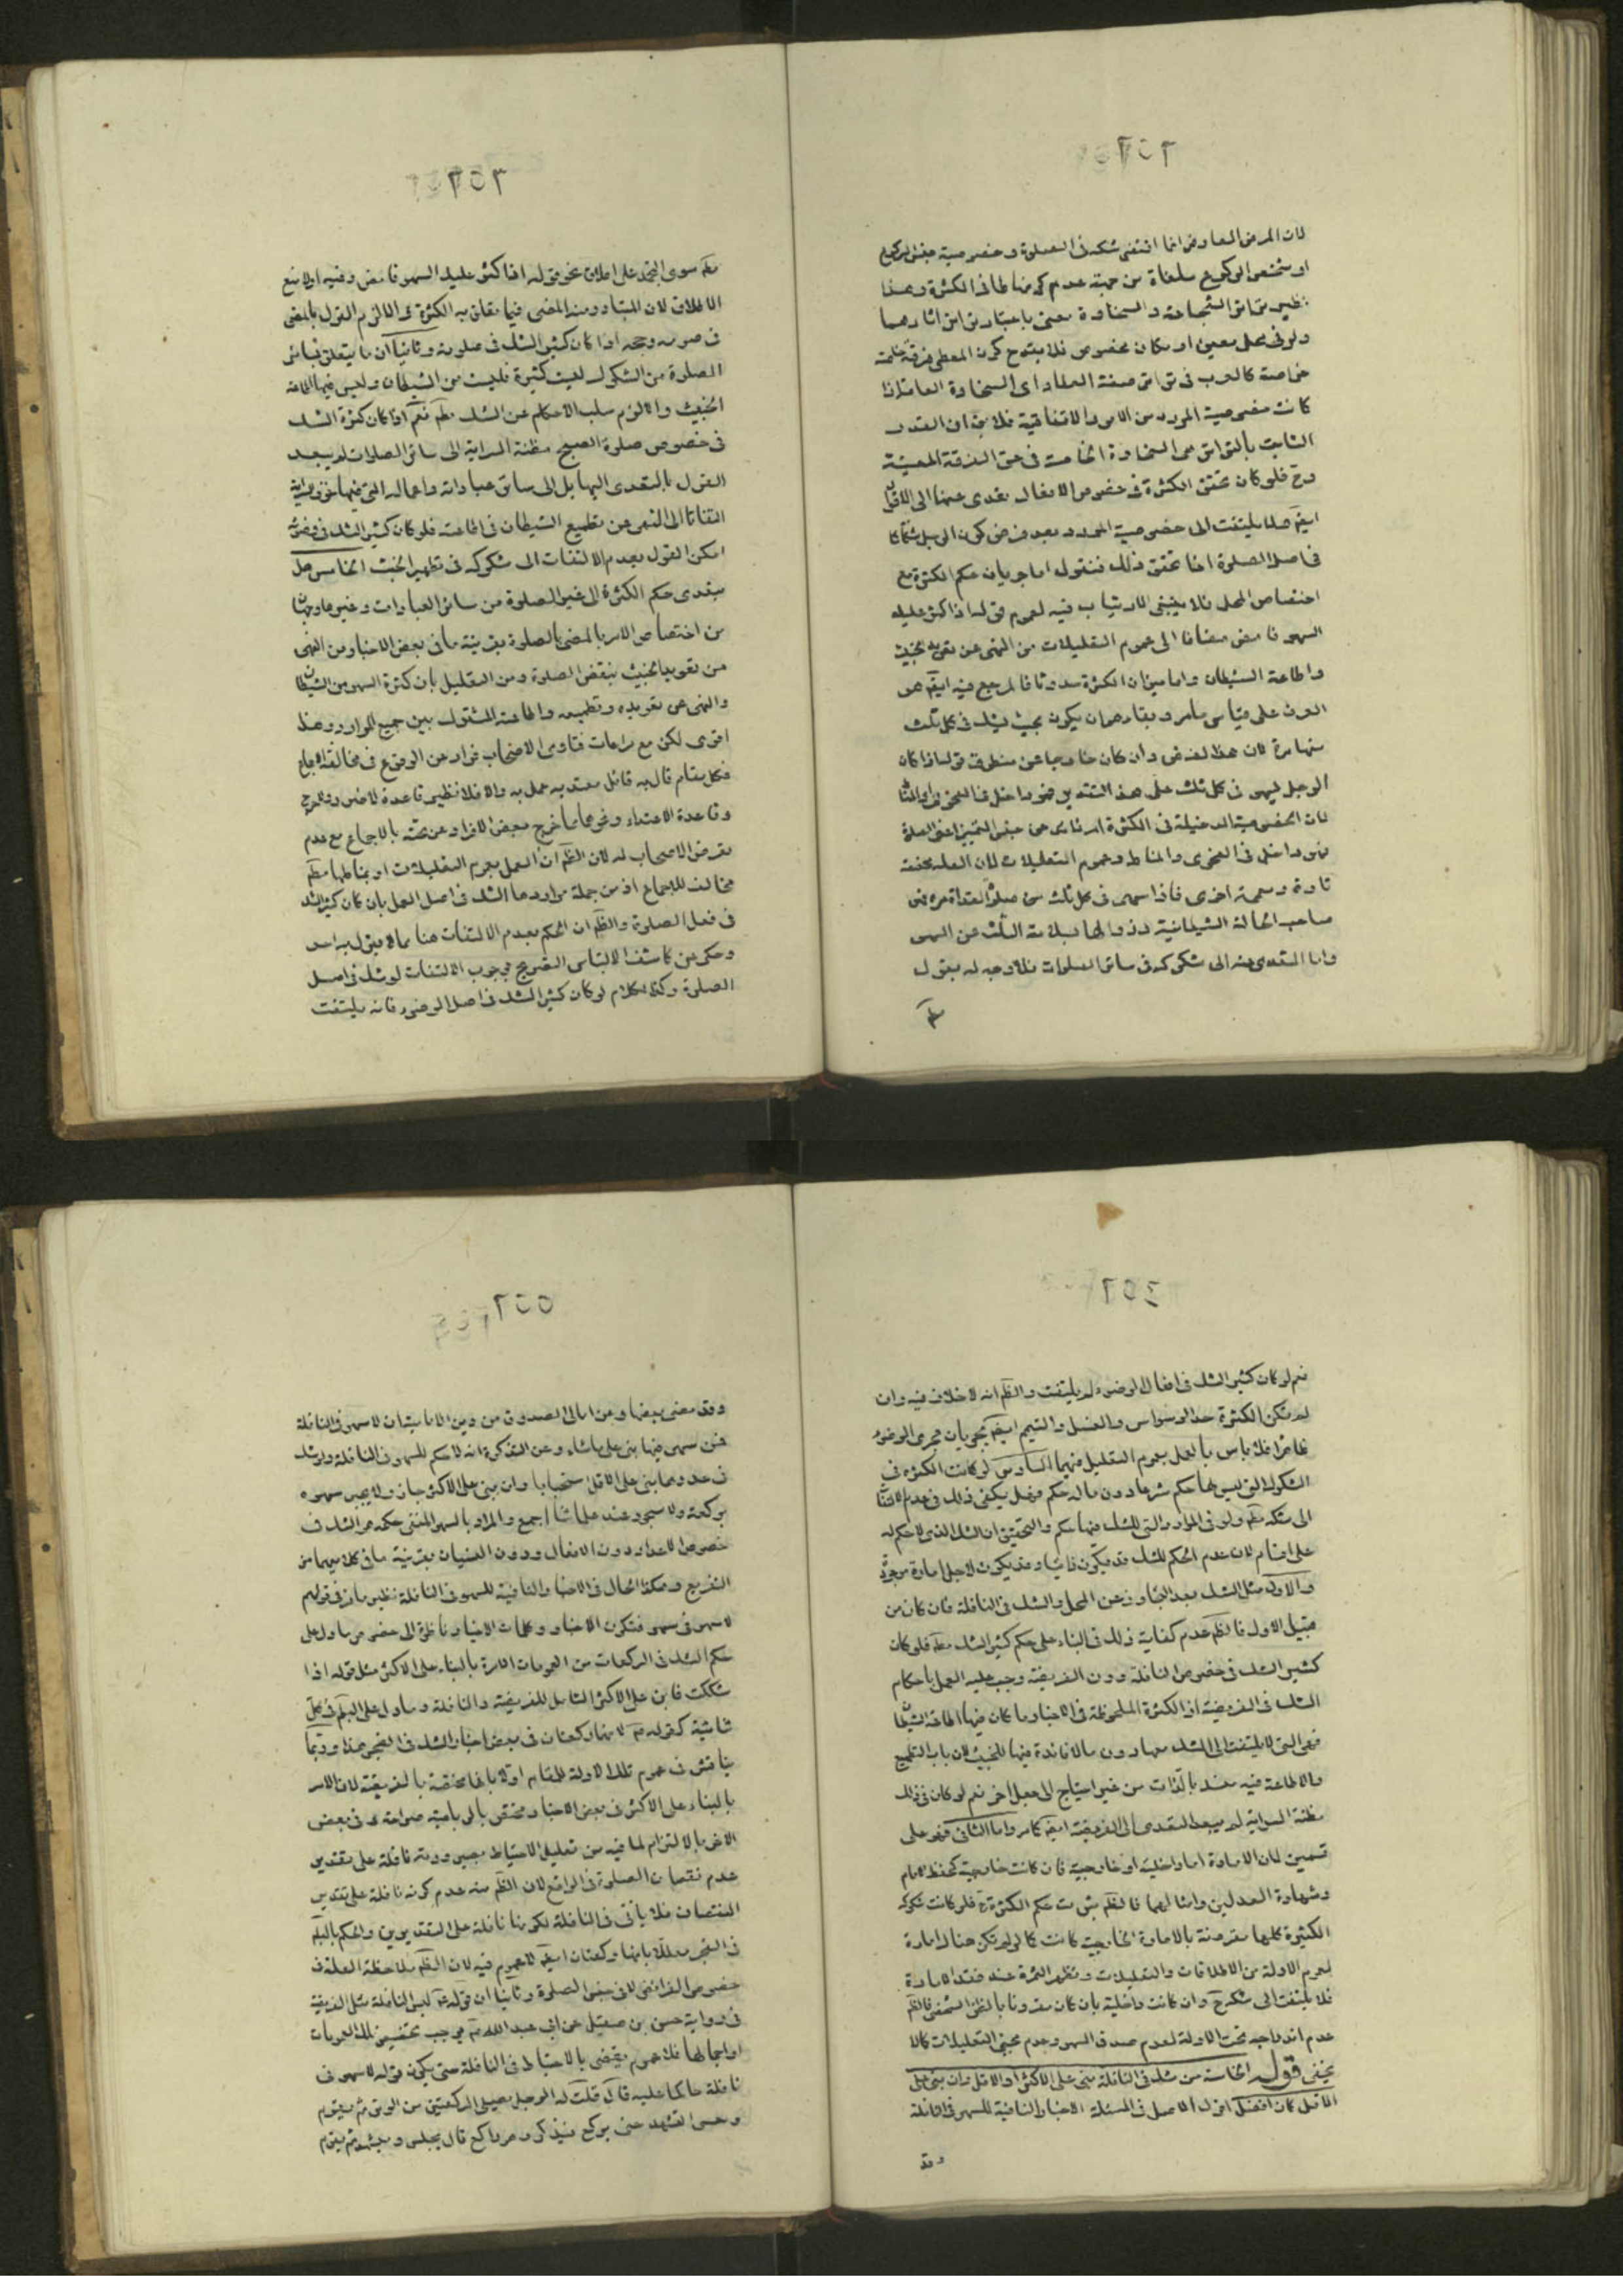 لان المرض العارض انما اقتضى شكه فى الصلوة وخصوصية جنس الركوع
او شخص الركوع ملغاة من جهة عدم كونها مناطا فى الكثرة وهذا
نظير توافق الشجاعة والسخاوة معنى باعتبار توافق اثارهما
ولو فى محل معين او مكان مخصوص فلا يقدح كون المعطى فرقة خاصة
خاصة كالعرب فى توافق صفة العطاء اى السخاوة العامة اذا
كانت خصوصية المورد من الامور الاتفاقية فلا يق ان القدر
الثابت بالتوافق هى السخاوة الخاصة فى حق الفرقة المعينة
وح فلو كان تحقق الكثرة فى خصوص الافعال تعدى عنها الى الاقوال
ايضا فلا يلتفت الى خصوصية المورد بعد فرض كون الرجل شكاكا
فى اصل الصلوة اذا تحقق ذلك فنقول اما جريان حكم الكثرة مع
اختصاص المحل فلا ينبغى الارتياب فيه لعموم قوله اذا كثر عليك
السهو فامض مضافا الى عموم التعليلات من النهى عن تعويد الخبيث
واطاعة الشيطان واما ميزان الكثرة حدوثا فالمرجع فيه ايضا هو
العرف على قياس مامر وبقاء هو ان يكون بحيث يشك فى كل ثلث
منها مرة لان هذا الفرض وان كان خارجا عن منطوق قوله اذا كان
الرجل يسهو فى كل ثلث على هذا التقدير فهو داخل فى الفحوى او المناط
لان الخصوصية الدخيلة فى الكثرة اذ
فهو داخل فى الفحوى والمناط وعموم التعليلات لان العلة مخصصة
تارة ومعممة اخرى فاذا سهى فى كل ثلث من صلوة الغداة مرة فهو
صاحب الحالة الشيطانية فزوالها بسلامة الثلث عن السهو
واما التعدى منه الى شكوكه فى سائر الصلوات فلا وجه له يعول
علم
علم سوى الجمود على اطلاق نحو قوله اذا كثر عليك السهو فامض وفيه اولا منع
الاطلاق لان المتبادر منه المضى فيما تعلق به الكثرة والا لزم القول بالمضى
فى صومه وحجه اذا كان كثير الشك فى صلوته وثانيا ان ما يتعلق بسائر
الصلوة من الشكوك ليست كثيرة فليست من الشيطان وليس فيها اطاعة
الخبيث والا لزم سلب الاحكام عن الشك مطم نعم اذا كان كثرة الشك
فى خصوص صلوة الصبح مظنة السراية الى سائر الصلوات لم يبعد
القول بالتعدى اليها بل الى سائر عباداته واعماله التى فيها خوف سراية
التفاتا الى النهى عن تطميع الشيطان فى اطاعته فلو كان كثير الشك فى وضوئه
امكن القول بعدم الالتفات الى شكوكه فى تطهير الخبث الخامس هل
يتعدى حكم الكثرة الى غير الصلوة من سائر العبادات وغيرها وجهان
من اختصاص الامر بالمضى بالصلوة بقرينة ما فى بعض الاخبار من النهى
عن تعويد الخبيث بنقض الصلوة ومن التعليل بان كثرة السهو من الشيطان
والنهى عن تعويده وتطميعه واطاعته المشترك بين جميع الموارد وهذا
اقوى لكن مع مراعات فتاوى الاصحاب فرارا عن الوقوع فى مخالفة الاجماع
فكل مقام قال به قائل معتد به عمل به والا فلا نظير قاعدة لا ضرر ولا حرج
وقاعدة الاعتداء ونحوهما مما خرج بعض الافراد عن تحته بالاجماع مع عدم
تعرض الاصحاب له لان الظم ان العمل بعموم التعليلات او بمناطها مطم
مخالف للاجماع اذ من جملة مواردها الشك فى اصل العمل بان كان كثير الشك
فى فعل الصلوة والظم ان الحكم بعدم الالتفات هنا مما لا يقول به احد
وحكى عن كاشف الالتباس التصريح بوجوب الالتفات لو شك فى اصل
الصلوة وكذا الكلام لو كان كثير الشك فى اصل الوضوء فانه يلتفت
نعم لو كان كثير الشك فى افعال الوضوء لم يلتفت والظم انه لا خلاف فيه وان
لم تكن الكثرة حد الوسواس والغسل والتيمم ايضا يجريان مجرى الوضوء
ظاهرا فلا باس بالعمل بعموم التعليل فيهما السادس لو كانت الكثرة فى
الشكوك التى ليس لها حكم شرعا دون ماله حكم فهل يكفى ذلك فى عدم الالتفات
الى شكه مطم ولو فى الموارد التى للشك فيها حكم والتحقيق ان الشك الذى لا حكم له
على اقسام لان عدم الحكم للشك قد يكون ذاتيا وقد يكون لاجل امارة موجودة
والاول مثل الشك بعد التجاوز عن المحل والشك فى النافلة فان كان من
قبيل الاول فالظم عدم كفاية ذلك فى البناء على حكم كثير الشك مطم فلو كان
كثير الشك فى خصوص النافلة دون الفريضة وجب عليه العمل باحكام
الشك فى الفريضة اذ الكثرة الملحوظة فى الاخبار ما كان فيها اطاعة الشيطان
فهى التى لا يلتفت الى الشك معها دون مالا فائدة فيها للخبيث لان باب التطميع
والاطاعة فيه منسد بالذات من غير احتياج الى جعل اخر نعم لو كان فى ذلك
مظنة السراية لم يبعد التعدى الى الفريضة ايضا كما مر واما الثانى فهو على
قسمين لان الامارة اما داخلية او خارجية فان كانت خارجية كحفظ الامام
وشهادة العدلين وامثالهما فالظم ثبوت حكم الكثرة ح فلو كانت شكوكه
الكثيرة كلها مقرونة بالامارة الخارجية كانت كما لو لم تكن هناك امارة
لعموم الادلة من الاطلاقات والتعليلات وتظهر الثمرة عند فقد الامارة
فلا يلتفت الى شكه ح وان كانت داخلية بان كان مقرونا بالظن الشخصى فالظم
عدم اندراجه تحت الادلة لعدم صدق السهو وعدم مجئ التعليلات كما لا
يخفى قوله الخامسة من شك فى النافلة بنى على الاكثر او الاقل وان بنى على
الاقل كان افضل اقول الاصل فى المسئلة الاخبار النافية للسهو فى النافلة
وقد
وقد مضى بعضها وعن امالى الصدوق من دين الامامية ان لا سهو فى النافلة
فمن سهى فيها بنى على ماشاء وعن التذكرة انه لا حكم للسهو فى النافلة ولو شك
فى عددها بنى على الاقل استحبابا وان بنى على الاكثر جاز ولا يجبر سهوه
بركعة ولا سجود عند علمائنا اجمع والمراد بالسهو المنفى حكمه هو الشك فى
خصوص الاعداد دون الافعال ودون النسيان بقرينة ما فى كلاميهما من
التفريع وهكذا الحال فى الاخبار النافية للسهو فى النافلة نظير مامر فى قولهم
لا سهو فى سهو فتكون الاخبار وكلمات الاخيار ناظرة الى خصوص مادل على
حكم الشك فى الركعات من العمومات الامرة بالبناء على الاكثر مثل قوله اذا
شككت فابن على الاكثر الشامل للفريضة والنافلة ومادل على البطلان فى كل
ثنائية كقوله ع لانها ركعتان فى بعض اخبار الشك فى الفجر هذا وربما
يناقش فى عموم تلك الادلة للمقام اولا بانها مختصة بالفريضة لان الامر
بالبناء على الاكثر فى بعض الاخبار مختص بالرباعية صراحة وفى بعض
الاخر بالالتزام لما فيه من تعليل الاحتياط بصيرورته نافلة على تقدير
عدم نقصان الصلوة فى الواقع لان الظم منه عدم كونه نافلة على تقدير
النقصان فلا يأتى فى النافلة لكونها نافلة على التقديرين والحكم بالبطلان
فى الفجر معللا بانها ركعتان ايضا لا عموم فيه لان الظم ملاحظة العلة فى
خصوص الفرائض لا فى جنس الصلوة وثانيا ان قوله ع ليس النافلة مثل الفريضة
فى رواية حسن بن صيقل عن ابى عبد الله ع يوجب تخصيص تلك العمومات
او اجمالها فلا عموم يقتضى بالاحتياط فى النافلة حتى يكون قوله لا سهو فى
نافلة حاكما عليه قال قلت له الرجل يصلى الركعتين من الوتر ثم يقوم
وينسى التشهد حتى يركع فيذكر وهو راكع قال يجلس ويتشهد ثم يقوم